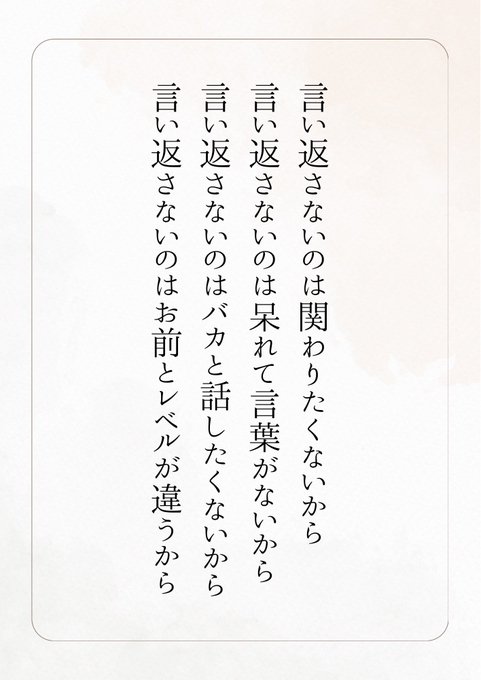 言い返さないのは関わりたくないから
言い返さないのは呆れて言葉がないから
言い返さないのはバカと話したくないから
言い返さないのはお前とレベルが違うから